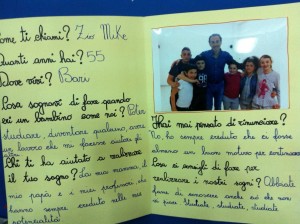 ome ti chiami? Zio Mike
uanti anni hai? 55
Dove vivi? Bari
Cosa sognavi di fare quando
eri un bambino come noi? Poter
studiare, diventare qualcuno, avere
un lavoro che mi facesse aiutare gli
Chi ti ha aiutato a realizzare
il tuo sogno? da mia mamma, il
mio papà e i miei professori, che
hanno sempre creduto nelle mie
potenzialità!
Hai mai pensato di rinunciare?
No, ho sempre creduto che ci fosse
almeno un buon motivo per continuare
Cosa ci consigli di fare per
realizzare i nostri sogni? Abbiate
fame di conoscere anche ciò che non
vi piace! Studiate, studiate, studiate